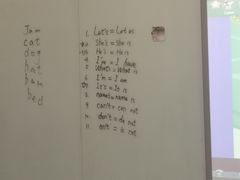 Jam
cat
dog
hat
ham
bed
1. Let's = Let us
She's = She is
He's = He is
I'm = I have
What's = What is
6. I'm = I am
It's = It is
8. name's = name is
9. can't = can not
10. don't = do not
11. isn't = is not